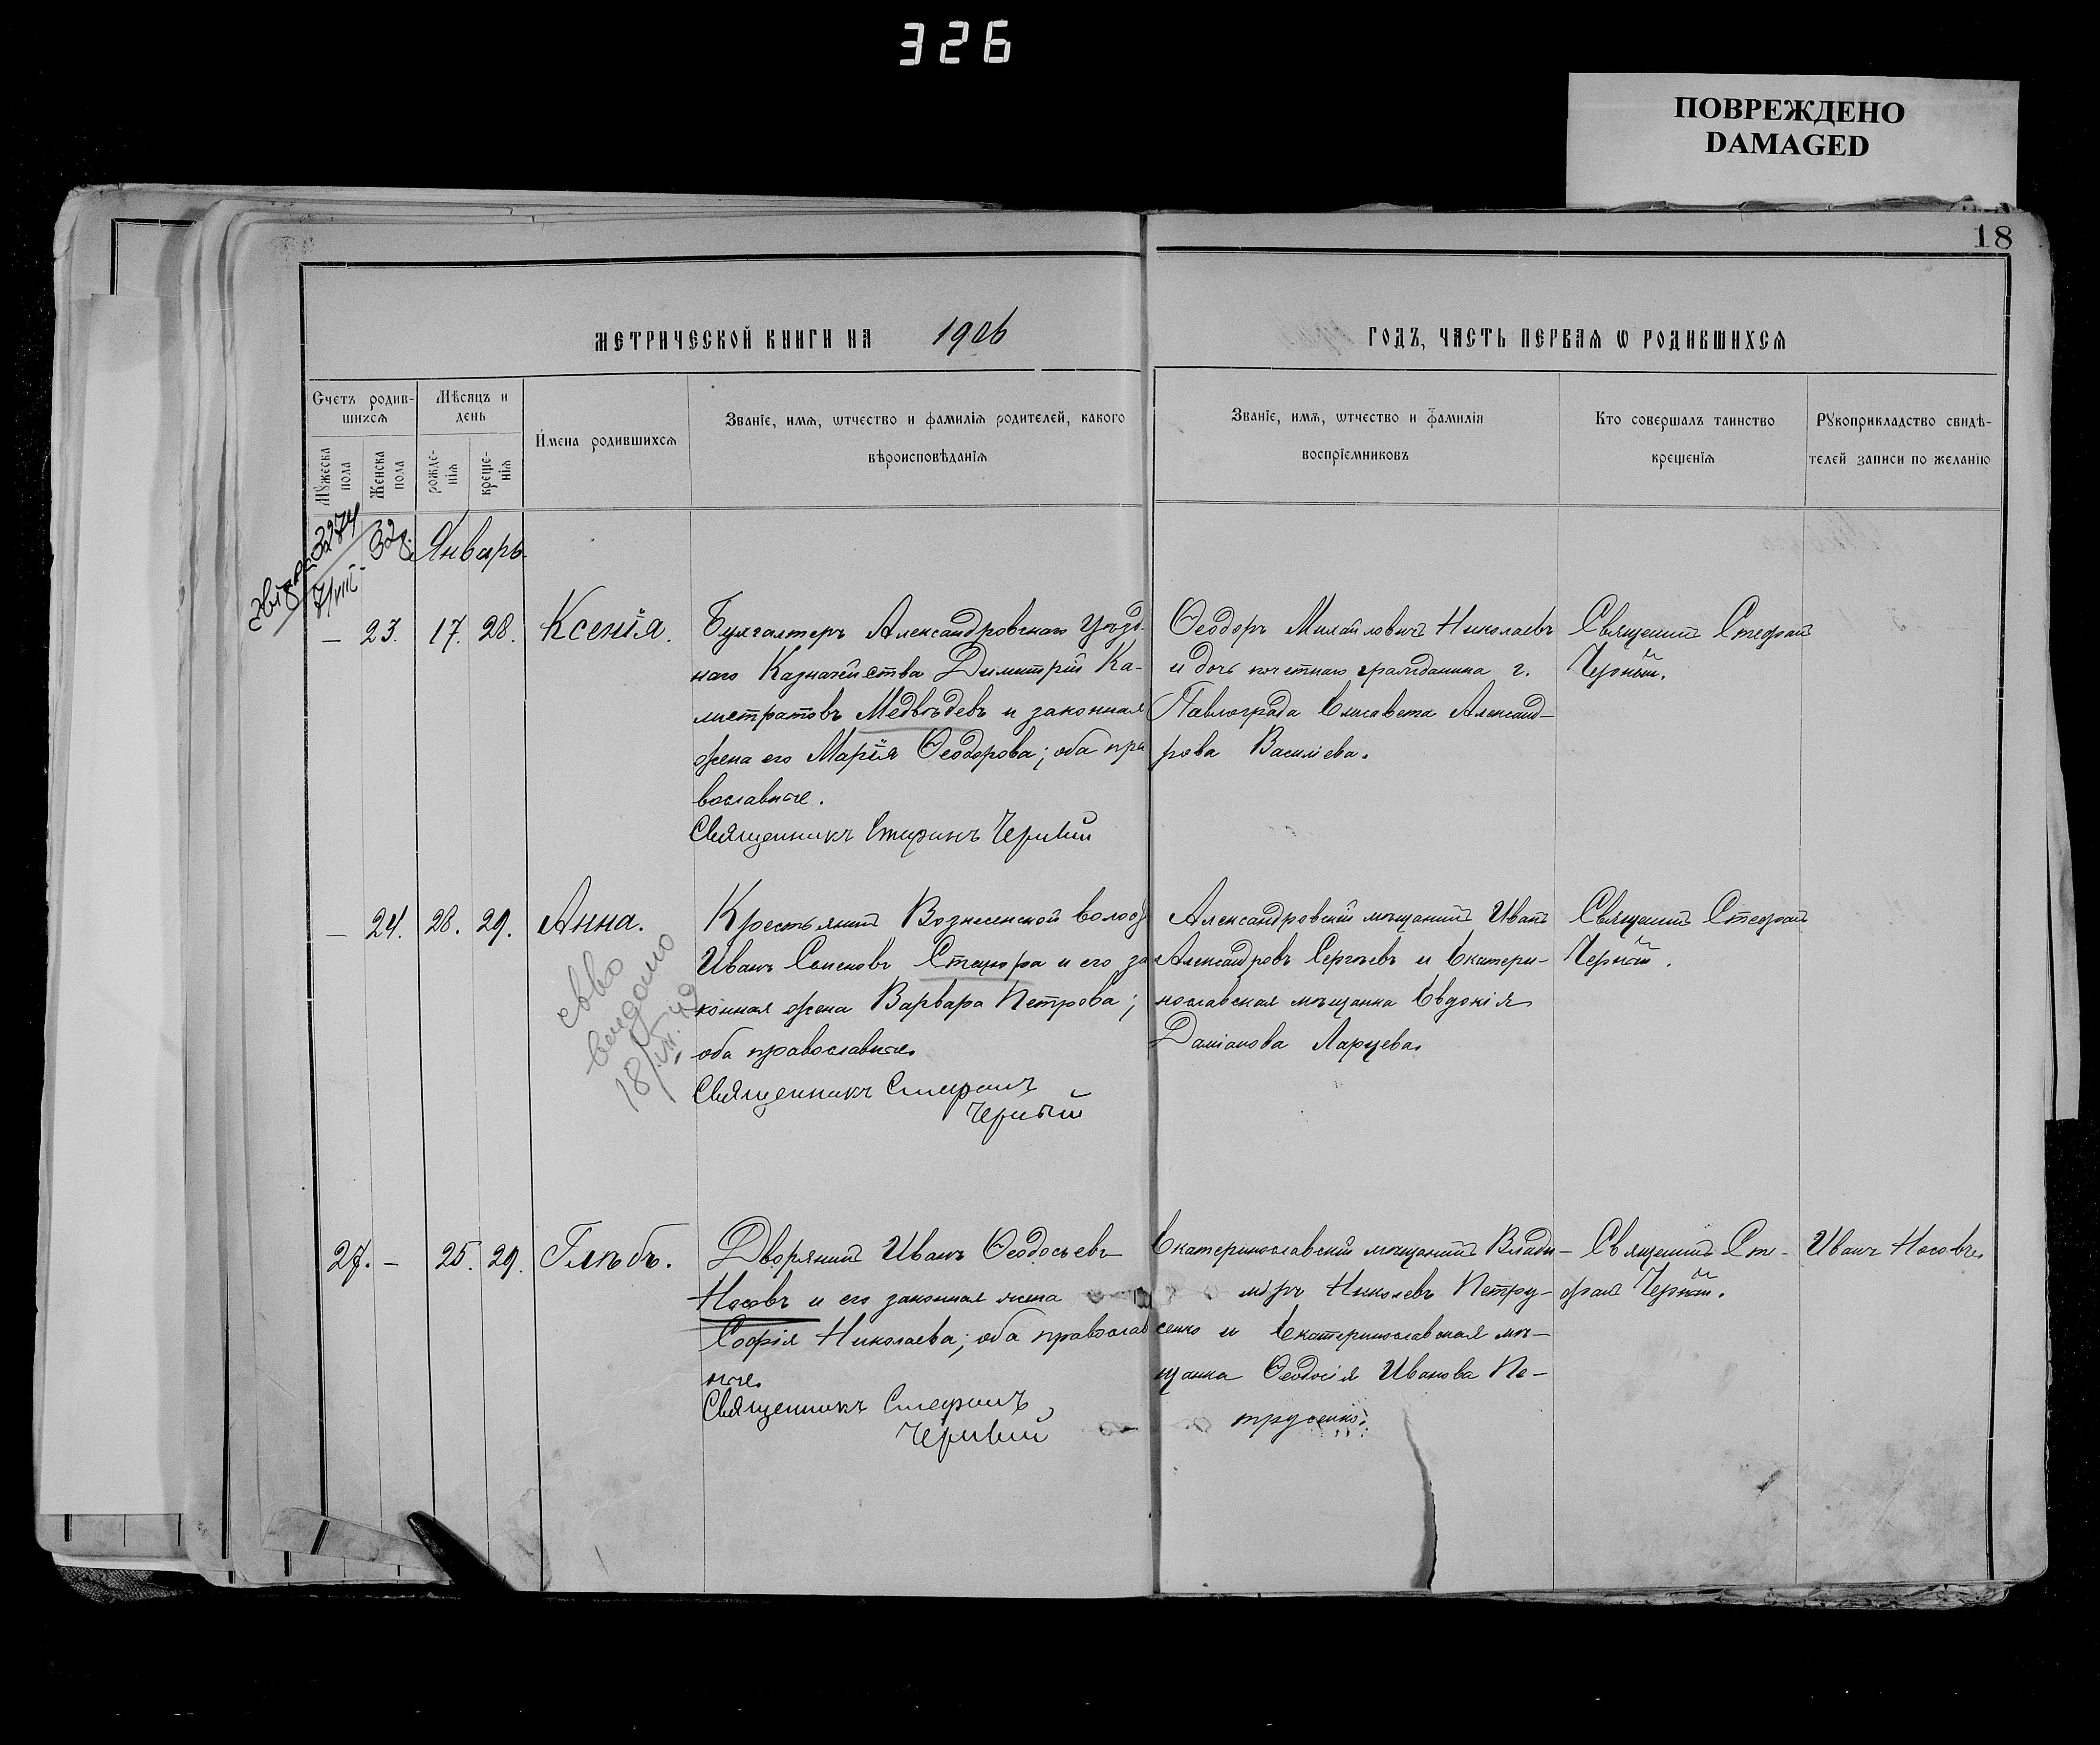 326
ПОВРЕЖДЕНО
DAMAGED
18
МЕТРИЧЕСКОЙ КНИГИ НА 1906
ГОДЪ, ЧАСТЬ ПЕРВАѦ Ѡ РОДИВШИХСѦ
Счетъ родив-
шихсѧ
Мѣсяцъ и
день
Мꙋжеска
пола
Женска
пола
рожде-
нїѧ
креще-
нїѧ
Имена родившихсѧ
Званїе, имѧ, ѿчество и фамилїѧ родителей, какого
вѣроисповѣданїѧ
Званїе, имѧ, ѿчество и фамилїѧ
воспрїемниковъ
Кто совершалъ таинство
крещенїѧ
Рꙋкоприкладство свидѣ-
телей записи по желанїю
3274
328.
7/VIII
Январь
— 23. 17. 28. Ксенія.
Бухгалтеръ Александровскаго Уѣзд-
наго Казначейства Димитрій Ка-
листратовъ Медвѣдевъ и законная
жена его Марія Ѳеодорова; оба пра
вославные.
Священникъ Стефанъ Черный
Ѳеодоръ Михайловичъ Николаевъ
и дочь почетнаго гражданина г.
Павлограда Елисавета Александ-
рова Василіева.
Священник Стефан
Черный.
— 24. 28. 29. Анна.
18/VII
Крестьянин Вознесенской волос
Иванъ Семеновъ и его за
конная жена Варвара Петрова;
оба православные.
Священникъ Стефанъ
Черный
Александровскій мѣщанин Иван
Александровъ Сергѣевъ и Екатери-
нославская мѣщанка Евдокія
Даміанова Ларцева.
Священник Стефан
Черный.
27. — 25. 29. Глѣбъ.
Дворянин Иванъ Ѳеодосьевъ
Носовъ и его законная жена
Софія Николаева; оба православ
ные.
Священникъ Стефанъ
Черный
Екатеринославскій мѣщанин Влади-
міръ Николаевъ Петру-
сенко и Екатеринославская мѣ-
щанка Ѳеодосія Иванова Пе-
трусенко.
Священник Сте-
фан Черный.
Иванъ Носовъ.